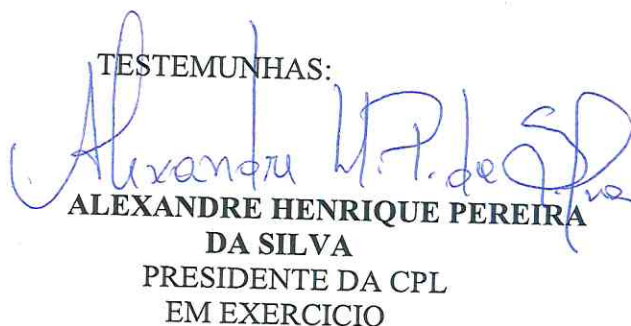 TESTEMUNHAS:
Alexandre H. P. da Silva
ALEXANDRE HENRIQUE PEREIRA
DA SILVA
PRESIDENTE DA CPL
EM EXERCICIO